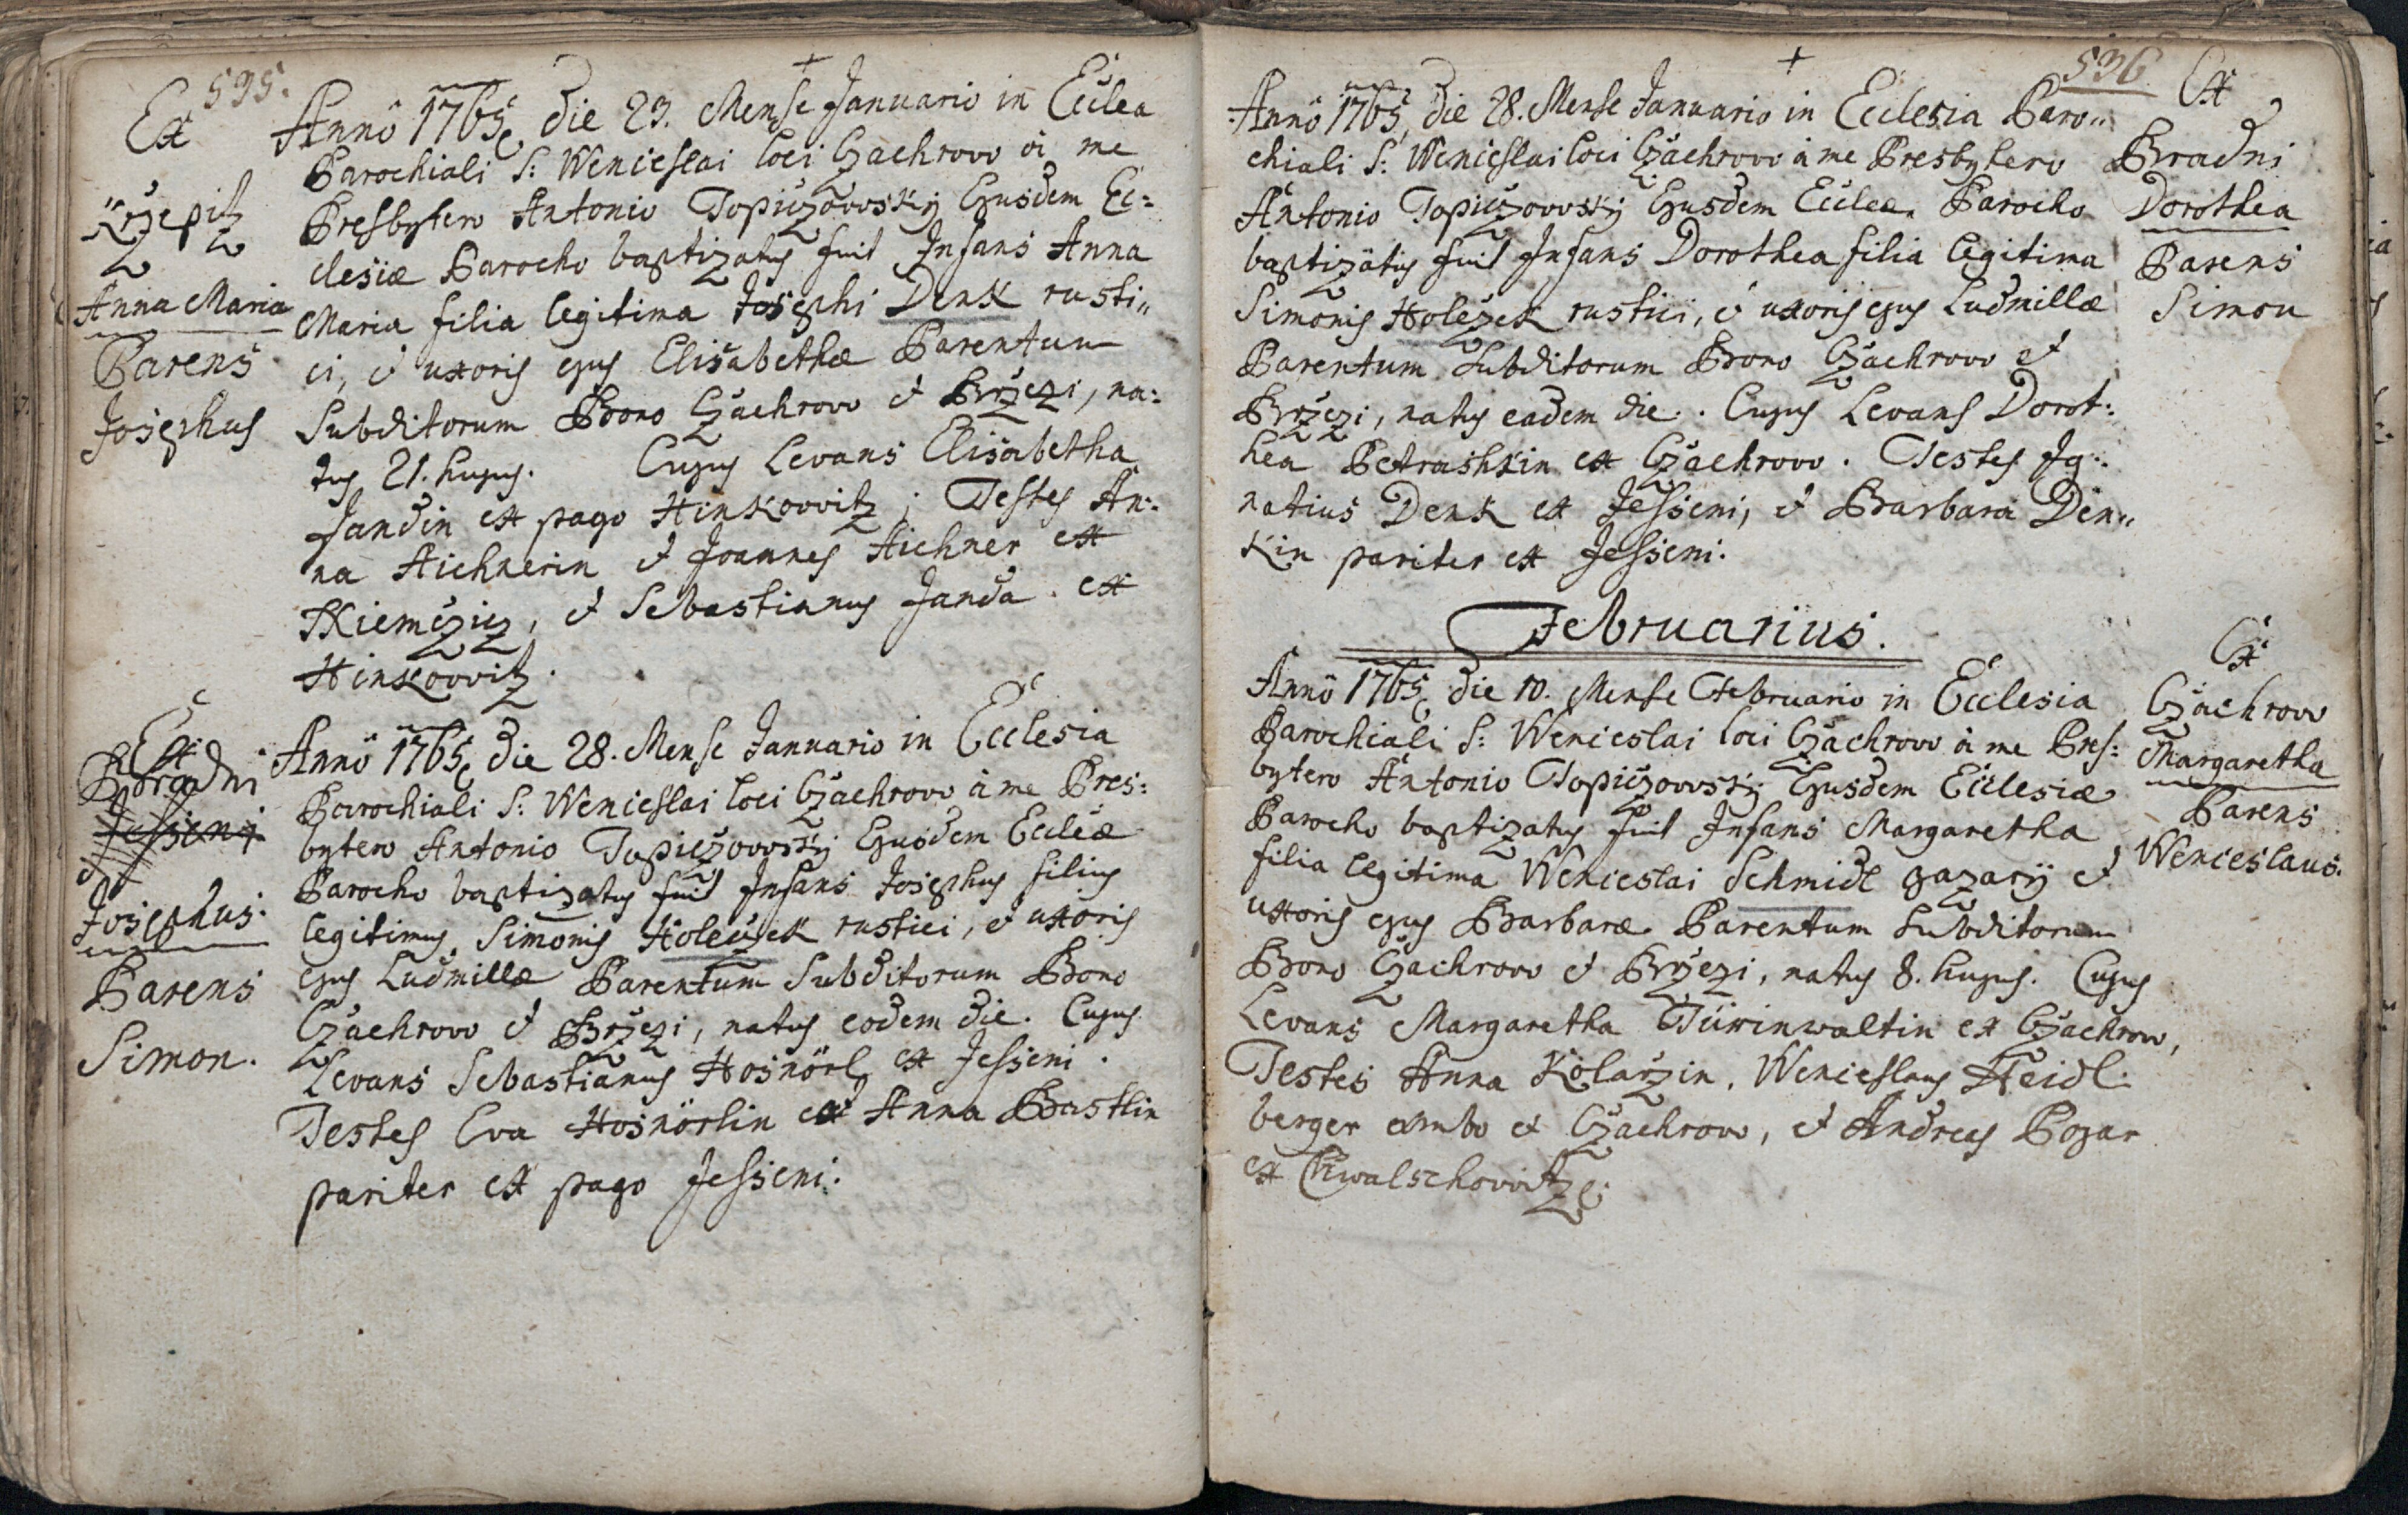 595.
Ex
Krżepitz
Anna Maria
Parens
Josephus
Anno 1765, die 23. Mense Januario in Ecclea
Parochiali S: Wenceslai loci Czachrow à me
Presbytero Antonio Topiczowsky Ejusdem Ec:
clesiæ Parocho baptizatus fuit Infans Anna
Maria filia legitima Josephi Denk rusti„
ci, et uxoris ejus Elisabethæ Parentum
Subditorum Bono Czachrow et Brżezi, na:
tus 21. hujus. Cujus Levans Elisabetha
Jandin ex pago Hinkowitz; Testes An:
na Aichnerin et Joannes Aichner ex
Kiemczicz, et Sebastianus Janda ex
Hinkowitz.
Ex
Bradni
Jesseni
Josephus.
Parens
Simon.
Anno 1765, die 28. Mense Januario in Ecclesia
Parochiali S: Wenceslai loci Czachrow à me Pres:
bytero Antonio Topiczowsky Ejusdem Eccleæ
Parocho baptizatus fuit Infans Josephus filius
legitimus Simonis Holeczek rustici, et uxoris
ejus Ludmillæ Parentum Subditorum Bono
Czachrow et Brżezi, natus eodem die. Cujus
Levans Sebastianus Hosnörl ex Jesseni.
Testes Eva Hosnörlin et Anna Bastlin
pariter ex pago Jesseni.
596
Anno 1765, die 28. Mense Januario in Ecclesia Paro„
chiali S: Wenceslai loci Czachrow à me Presbytero
Antonio Topiczowsky Ejusdem Eccleæ Parocho
baptizatus fuit Infans Dorothea filia legitima
Simonis Holeczek rustici, et uxoris ejus Ludmillæ
Parentum Subditorum Bono Czachrow et
Brżezi, natus eadem die. Cujus Levans Dorot:
hea Petrashkin ex Czachrow. Testes Ig:
natius Denk ex Jesseni, et Barbara Den„
kin pariter ex Jesseni.
Ex
Bradni
Dorothea
Parens
Simon
Februarius.
Anno 1765, die 10. Mense Februario in Ecclesia
Parochiali S: Wenceslai loci Czachrow à me Pres:
bytero Antonio Topiczowsky Ejusdem Ecclesiæ
Parocho baptizatus fuit Infans Margaretha
filia legitima Wenceslai Schmidl gazarij et
uxoris ejus Barbaræ Parentum Subditorum
Bono Czachrow et Brżezi, natus 8. hujus. Cujus
Levans Margaretha Türinwaltin ex Czachrow,
Testes Anna Kolarzin, Wenceslaus Heidl:
berger ambo ex Czachrow, et Andreas Pojar
ex Chwalschowitz.
Ex
Czachrow
Margaretha
Parens
Wenceslaus.